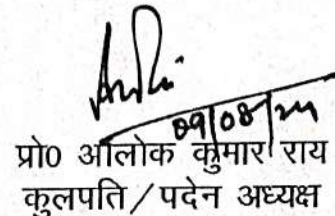 09/08/24
प्रो0 आलोक कुमार राय
कुलपति / पदेन अध्यक्ष